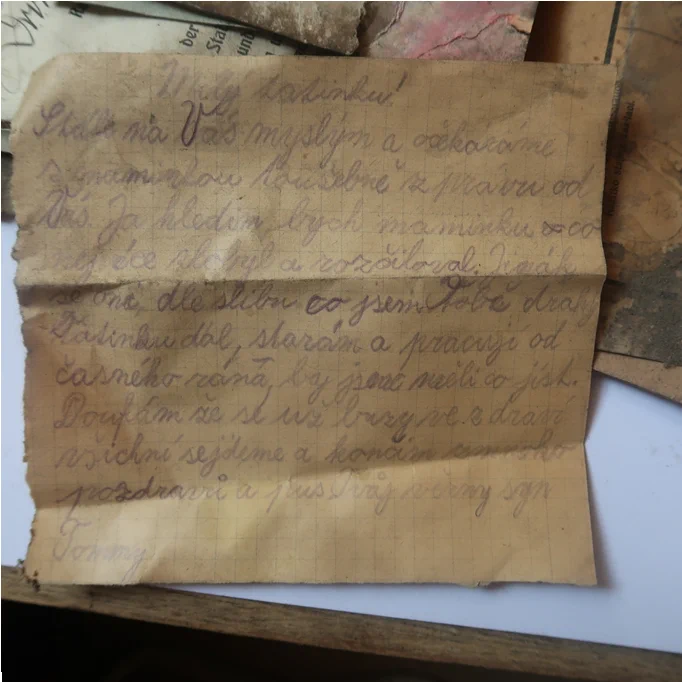 Milý tatínku!
Stále na Vás myslým a očekáváme
s maminkou toužebně zprávu od
Vás. Ja hledím, bych maminku co
nej zlobyl a rozčiloval. Jinák
se dle slibu co jsem Tobě drahý
Tatinku dal, starám a pracuji od
časného rána, by jsme měli co jíst.
Doufám že se už brzy ve zdraví
všichní sejdeme a končím
pozdravů a pus Tvůj věrny syn
Tommy